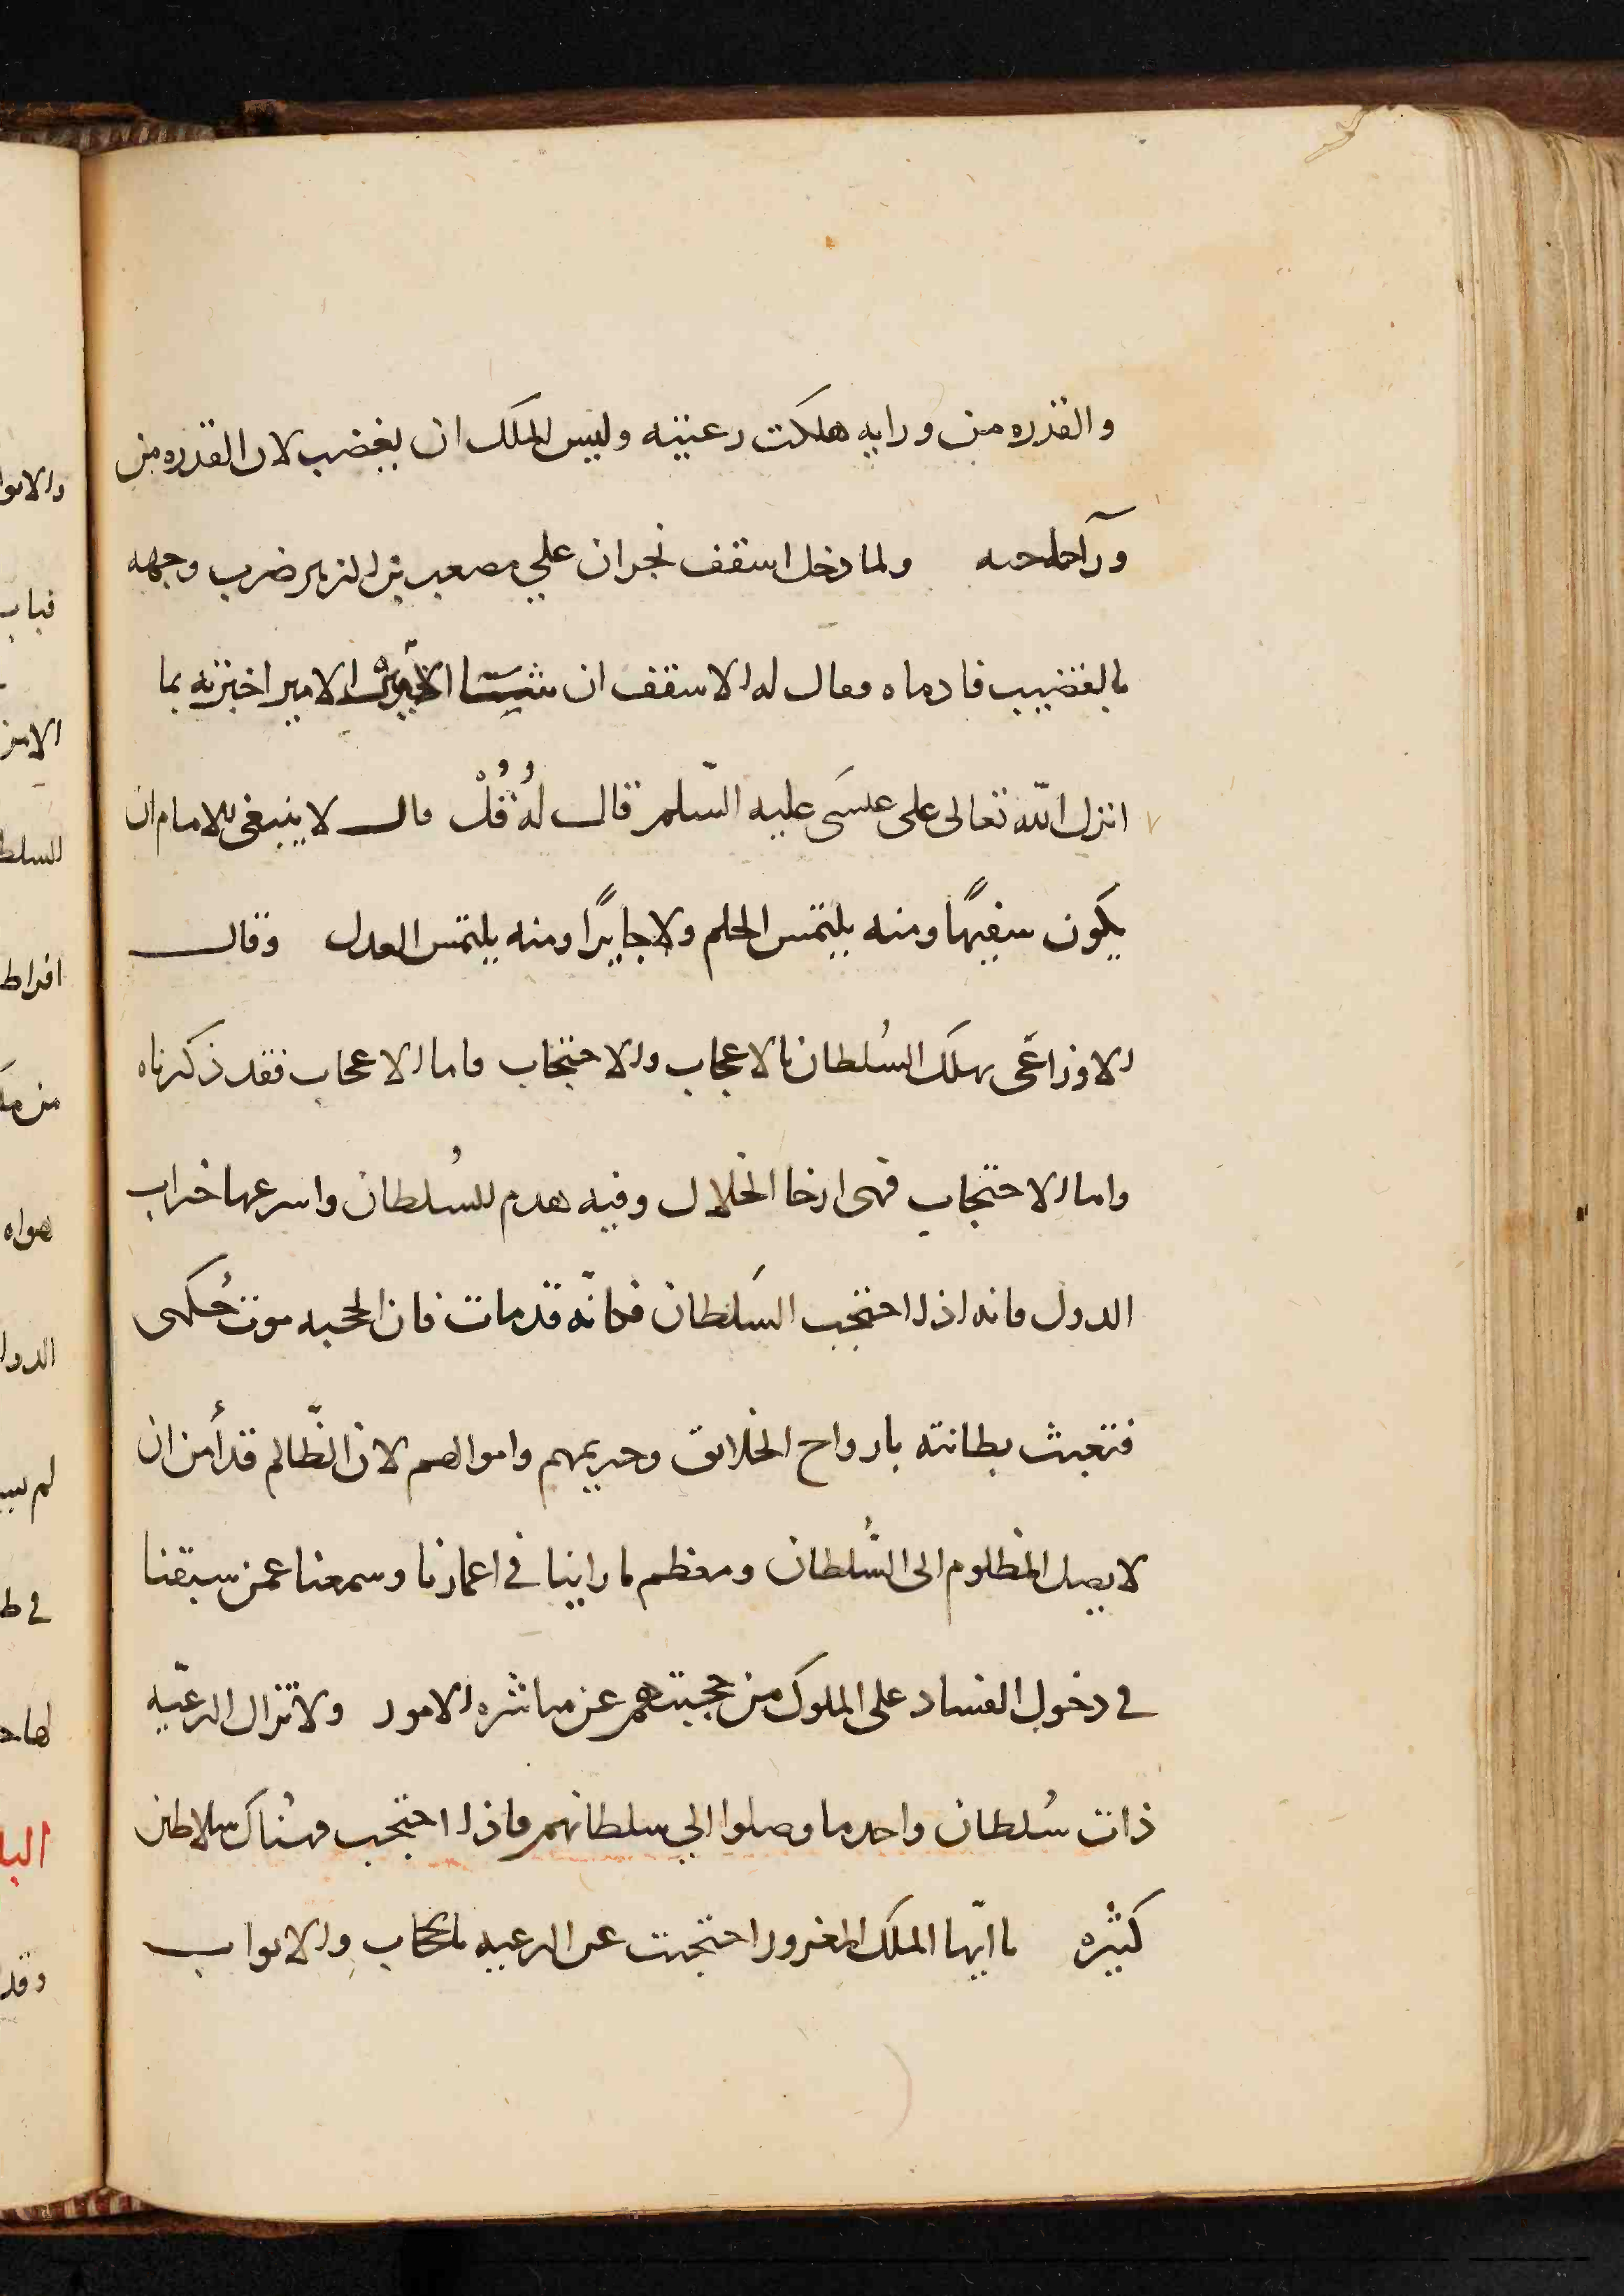 والقدره من ورايه هلكت رعيته وليس للملك ان يغضب لان القدره من
ورآ حاجته ولما دخل اسقف نجران علي مصعب بن الزبير ضرب وجهه
بالقضيب فادماه فقال له الاسقف ان شيت الامير اخبرته بما
انزل الله تعالى على عيسَى عليه السّلم قال لهُ قُلْ قال لا ينبغى للامام ان
يكون سفيهًا ومنه يلتمس الحلم ولا جايرًا ومنه يلتمس العدل وقال
الاوزاعَى يهلك السُلطان بالاعجاب والاحتجاب فاما الاعجاب فقد ذكرناه
واما الاحتجاب فهى ارخا الخلال وفيه هدم للسُلطان واسرعها خراب
الدول فانه اذا احتجب السَلطان فكانّه قد مات فان الحجبه موت حُكمى
فتعبث بطانته بارواح الخلائق وحريمهم واموالهم لان الظّالم قد أمن ان
لا يصل المظلوم الى السُّلطان ومعظم ما راينا في اعمارنا وسمعنا عمن سبقنا
في دخول الفساد على الملوك من حجبتهم عن مباشره الامور ولا تزال الرعيّه
ذات سُلطان واحد ما وصلوا الي سلطانهم فاذا احتجب فهُناك سلاطين
كثيره يا ايّها الملك المغرور احتجبت عن الرعيه بالحجاب والابواب
والابوا
فباب
السلط
افراط
هواه
الدول
في ط
لها حا
البا
وقد